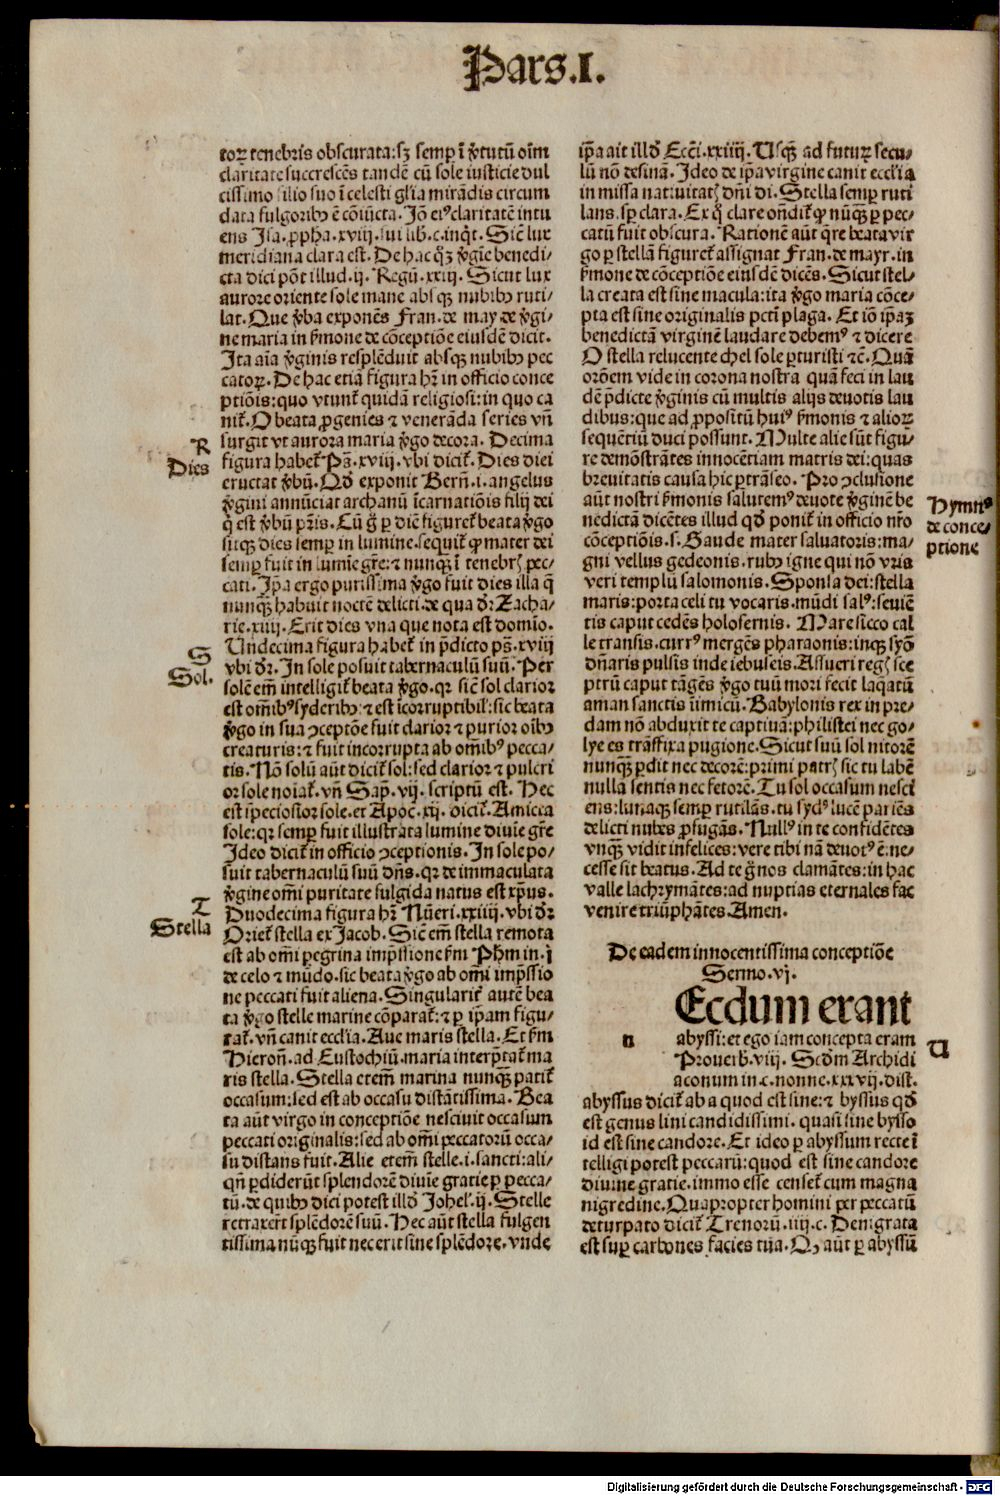 Pars.I.
toꝝ tenebris obscurata:sꝫ semp̱ ī ꝟtutū oīm
claritate succrescēs tandē cū sole iusticie dul
cissimo filio suo ī celesti gl̄ia mirādis circum
data fulgoribꝰ ē cōiūcta. Jō eiꝰ claritatē intu
ens Jsa. ꝓpha. xviii. sui lib̄. c. inq̇t. Sic̄ lux
meridiana clara est. De hac q̇ꝫ ꝟgīe benedi-
cta dici pōt illud. ij. Regū. xxiij. Sicut lux
aurore oriente sole mane absqꝫ nubibꝫ ruti/
lat. Que ꝟba exponēs Fran. de may. de ꝟgi-
ne maria in ẜmone de cōceptiōe eiusdē dicit.
Jta aīa ꝟginis resplēduit absqꝫ nubibꝫ pec
catoꝝ. De hac etiā figura hr̄ in officio conce
ptiōis: quo vtunt᷑ quidā religiosi: in quo ca
nit᷑. O beata ꝓgenies ⁊ venerāda series vn̄
surgit vt aurora maria ꝟgo decora. Decima
figura habet᷑ Ps̄. xviii. vbi dicit᷑. Dies diei
eructat ꝟbū. Qd̄ exponit Bern̄. i. angelus
ꝟgini annūciat archanū īcarnatiōis filij dei
q̇ est ꝟbū pr̄is. Cū g̊ ꝑ diē figuret᷑ beata ꝟgo
sitqꝫ dies semp̱ in lumine. sequit᷑ ꝙ mater dei
semp̱ fuit in lumīe gr̄e: ⁊ nunqꝫ̄ ī tenebr̄ pec-
cati. Jp̄a ergo purissima ꝟgo fuit dies illa q̄
nunqꝫ̄ habuit noctē delicti. de qua dr̄. Zacha-
rie. xiiij. Erit dies vna que nota est domīo.
Undecima figura habet᷑ in p̄dicto ps̄. xviij
vbi dr̄. Jn sole posuit tabernaculū suū. Per
solē em̄ intelligit᷑ beata ꝟgo. qꝛ sic̄ sol clarior
est om̄ibꝰ syderibꝫ: ⁊ est īcorruptibil̄: sic beata
ꝟgo in sua ꝯceptōe fuit clarior ⁊ purior oībꝫ
creaturis: ⁊ fuit incorrupta ab om̄ibꝰ pecca-
tis. Nō solū aūt dicit᷑ sol: sed clarior ⁊ pulcri
or sole noīat᷑. vn̄ Sap̄. vij. scriptū est. Hec
est īpeciosior sole. et Apoc̄. xij. dicit᷑. Amicta
sole: qꝛ semp̱ fuit illustrata lumine diuīe gr̄e
Jdeo dicit᷑ in officio ꝯceptionis. Jn sole po-
suit tabernaculū suū dn̄s. qꝛ de immaculata
ꝟgine om̄i puritate fulgida natus est xp̄us.
Duodecima figura hr̄ Nūeri. xxiiij. vbi dr̄
Oriet᷑ stella ex Jacob. Sic̄ em̄ stella remota
est ab om̄i peregrina imp̄ssione ẜm Phm̄ in. j
de celo ⁊ mūdo. sic beata ꝟgo ab om̄i imp̄ssio
ne peccati fuit aliena. Singularit᷑ autē bea
ta ꝟgo stelle marine cōparat᷑: ⁊ ꝑ ip̄am figu-
rat᷑. vn̄ canit eccl̄ia. Aue maris stella. Et ẜm
Hieron̄. ad Eustochiū. maria interp̄tat᷑ ma
ris stella. Stella etem̄ marina nunqꝫ̄ patit᷑
occasum: sed est ab occasu distātissima. Bea
ta aūt virgo in conceptiōe nesciuit occasum
peccati originalis: sed ab om̄i peccatorū occa/
su distans fuit. Alie etem̄ stelle. i. sancti: ali/
qn̄ ꝑdiderūt splendorē diuīe gratie ꝑ pecca-
tū. de quibꝫ dici potest illd̄ Johel̄. ij. Stelle
retraxert̄ splēdorē suū. Hec aūt stella fulgen
tissima nūqꝫ fuit nec erit sine splēdore. vnde
R
Dies
S
Sol.
T
Stella
ip̄a ait illd̄ Ecc̄i. xxiiij. Usqꝫ ad futuꝝ secu/
lū nō desinā. Jdeo de ip̄a virgine canit eccl̄ia
in missa natiuitat̄ dn̄i di. Stella semp̱ ruti
lans. sp̱ clara. Ex q̊ clare on̄dit᷑ ꝙ nūqꝫ̄ ꝑ pec-
catū fuit obscura. Rationē aūt q̄re beata vir
go ꝑ stellā figuret᷑ assignat Fran. de mayr. in
ẜmone de cōceptiōe eiusdē dicēs. Sicut stel-
la creata est sine macula: ita ꝟgo maria cōce-
pta est sine originalis pctī plaga. Et iō ip̄aꝫ
benedictā virginē laudare debemꝰ ⁊ dicere
O stella relucente chel sole ꝑturisti ⁊c̄. Quā
orōem vide in corona nostra quā feci in lau
dē p̄dicte ꝟginis cū multis alijs deuotis lau
dibus: que ad ꝓpositū huiꝰ ẜmonis ⁊ alioꝝ
sequētiū duci possunt. Multe alie sūt figu-
re demōstrātes innocētiam matris dei: quas
breuitatis causa hic ꝑtrāseo. Pro ꝯclusione
aūt nostri ẜmonis salutemꝰ deuote ꝟginē be
nedictā dicētes illud qd̄ ponit᷑ in officio nr̄o
cōceptiōis. s. Gaude mater saluatoris: ma-
gni vellus gedeonis. rubꝰ igne qui nō vris
veri templū salomonis. Sponsa dei: stella
maris: porta celi tu vocaris. mūdi salꝰ: seuiē
tis caput cedēs holofernis. Mare sicco cal
le transis. currꝰ mergēs pharaonis: inqꝫ syō
dn̄aris pulsis inde iebuseis. Assueri reḡ sce
ptrū caput tāgēs ꝟgo tuū mori fecit laqatū
aman sanctis īimicū. Babylonis rex in pre-
dam nō abduxit te captiuā: philistei nec go-
lye es trāsfixa pugione. Sicut suū sol nitorē
nunqꝫ̄ ꝑdit nec decorē: primi patr̄ sic tu labē
nulla sentis nec fetorē. Tu sol occasum nesci
ens: lunaqꝫ semp̱ rutilās. tu sydꝰ lucē pariēs
delicti nubes ꝓfugās. Nullꝰ in te confidētes
vnqꝫ̄ vidit infelices: vere tibi nā deuotꝰ ē: ne-
cesse sit beatus. Ad te g̊ nos clamātes: in hac
valle lachrymātes: ad nuptias eternales fac
venire triūphātes. Amen.
Hymnꝰ
de conce/
ptione
De eadem innocentissima conceptiōe
Sermo. vj.
n
Ecdum erant
abyssi: et ego iam concepta eram
Prouerb̄. viij. Scd̄m Archidi
aconum in. c. nonne. xxxvij. dist.
abyssus dicit᷑ ab a quod est sine: ⁊ byssus qd̄
est genus lini candidissimi. quasi sine bysso
id est sine candore. Et ideo ꝑ abyssum recte ī
telligi potest peccatū: quod est sine candore
diuine gratie. immo esse censet᷑ cum magna
nigredine. Quapropter homini per peccatū
deturpato dicit᷑ Trenorū. iiij. c. Denigrata
est sup̱ carbones facies tua. Q, aūt ꝑ abyssū
U
Digitalisierung gefördert durch die Deutsche Forschungsgemeinschaft - DFG